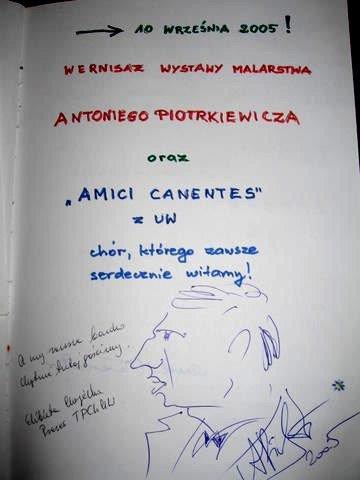 → 10 WRZEŚNIA 2005!
WERNISAŻ WYSTAWY MALARSTWA
ANTONIEGO PIOTRKIEWICZA
oraz
„AMICI CANENTES"
z UW
chór, którego zawsze
serdecznie witamy!
A my
chętnie
Elżbieta
Prezes
2005